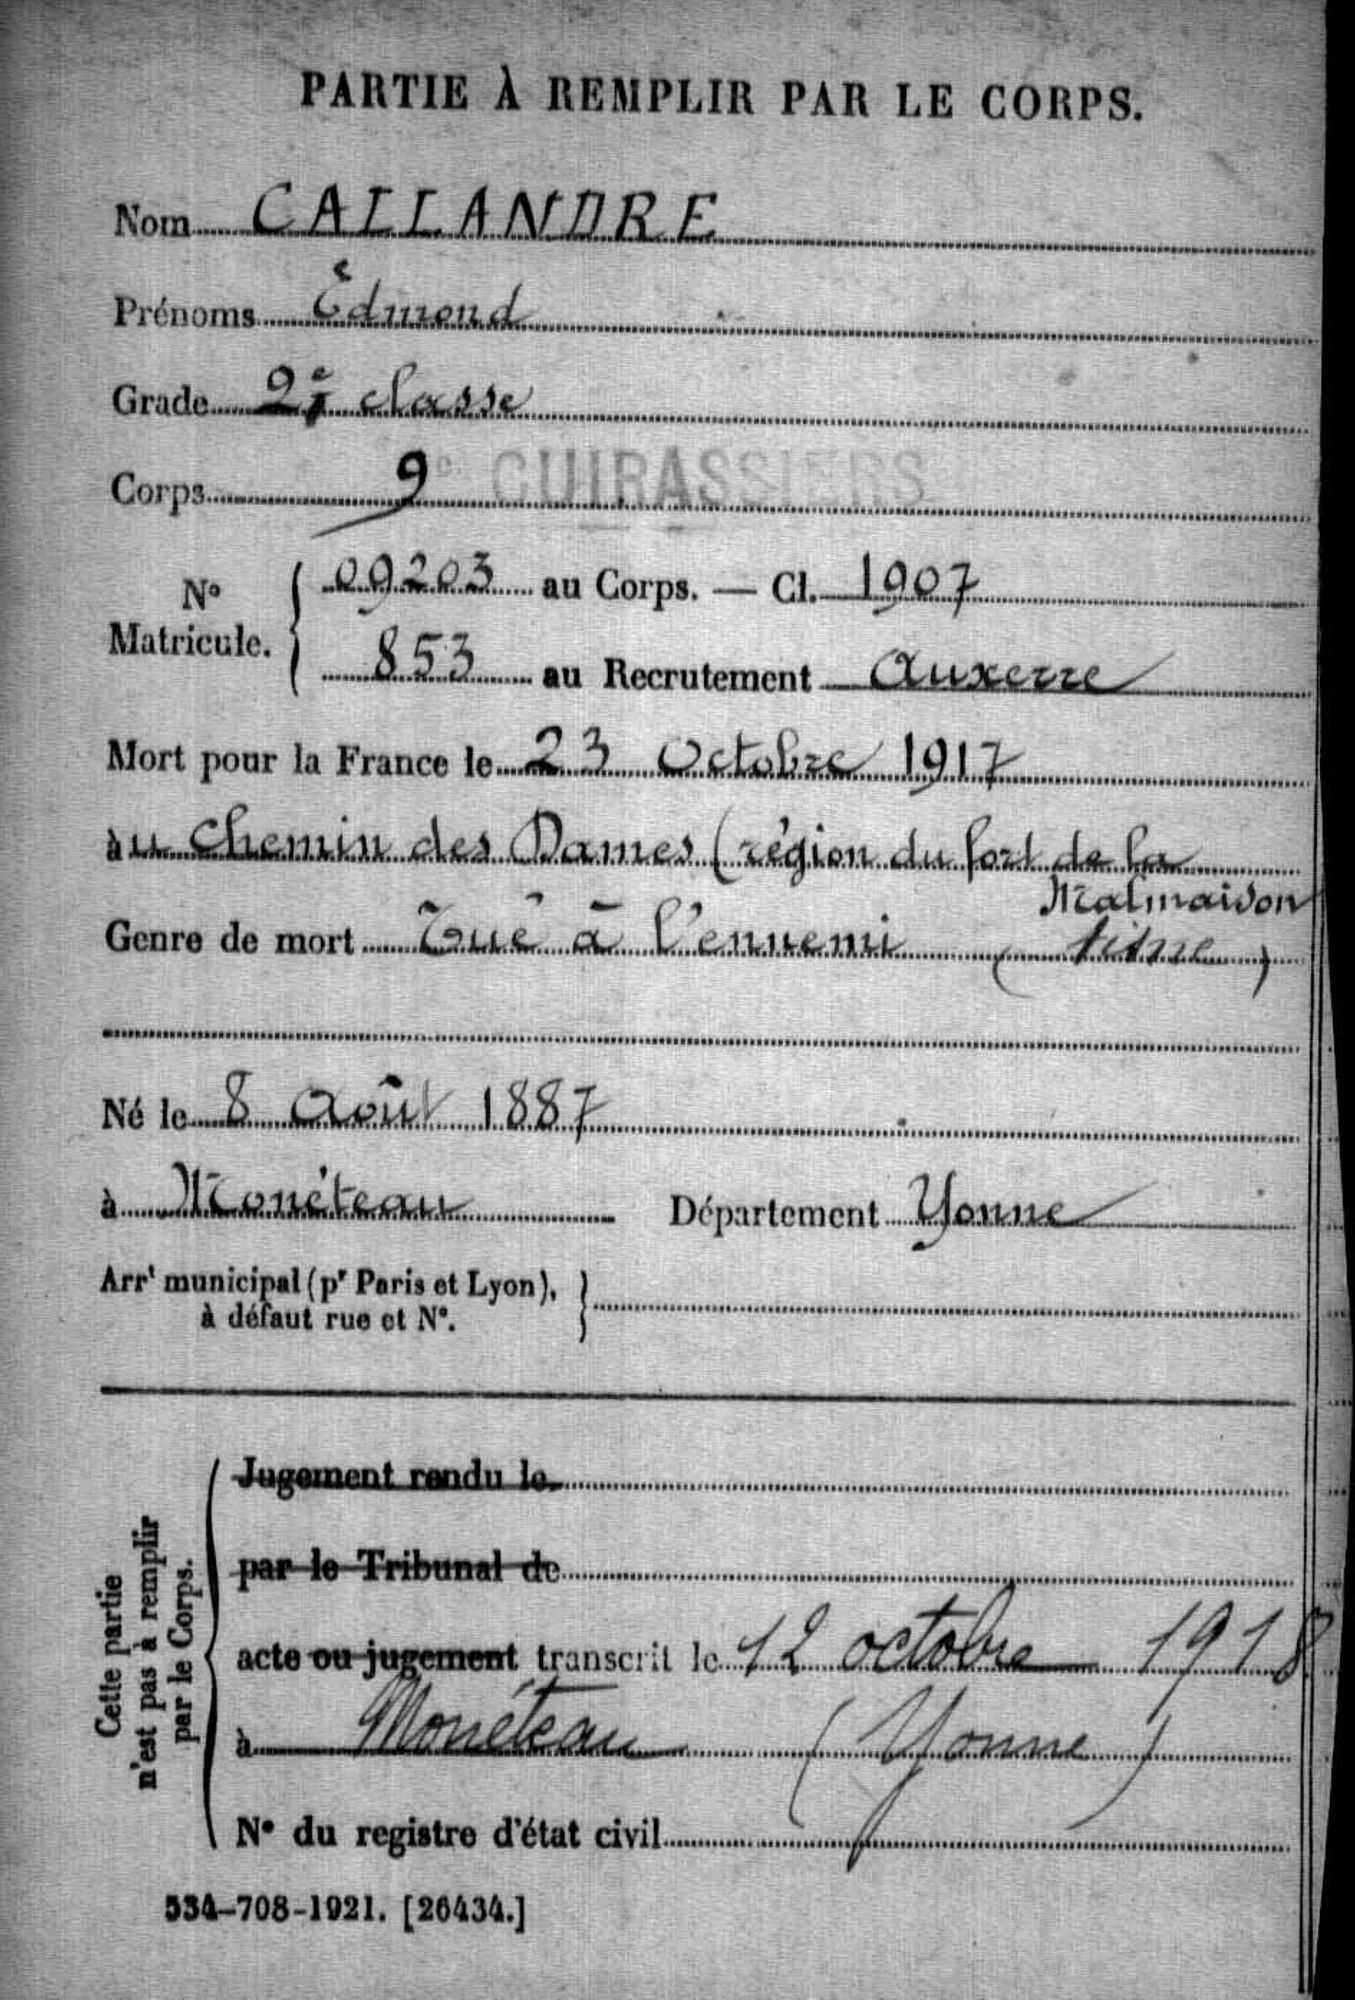 PARTIE À REMPLIR PAR LE CORPS.
Nom CALLANDRE
Prénoms Edmond
Grade 2e classe
Corps 9e CUIRASSIERS
No Matricule. 09203 au Corps. — Cl. 1907
853 au Recrutement Auxerre
Mort pour la France le 23 Octobre 1917
au Chemin des Dames (région du fort de la
Malmaison
Genre de mort Tué à l'ennemi (Aisne)
Né le 8 Août 1887
à Monéteau Département Yonne
Arrt municipal (pr Paris et Lyon),
à défaut rue et No.
Cette partie
n'est pas à remplir
par le Corps.
Jugement rendu le
par le Tribunal de
acte ou jugement transcrit le 12 octobre 1918
à Monéteau (Yonne)
No du registre d'état civil
534-708-1921. [26434.]